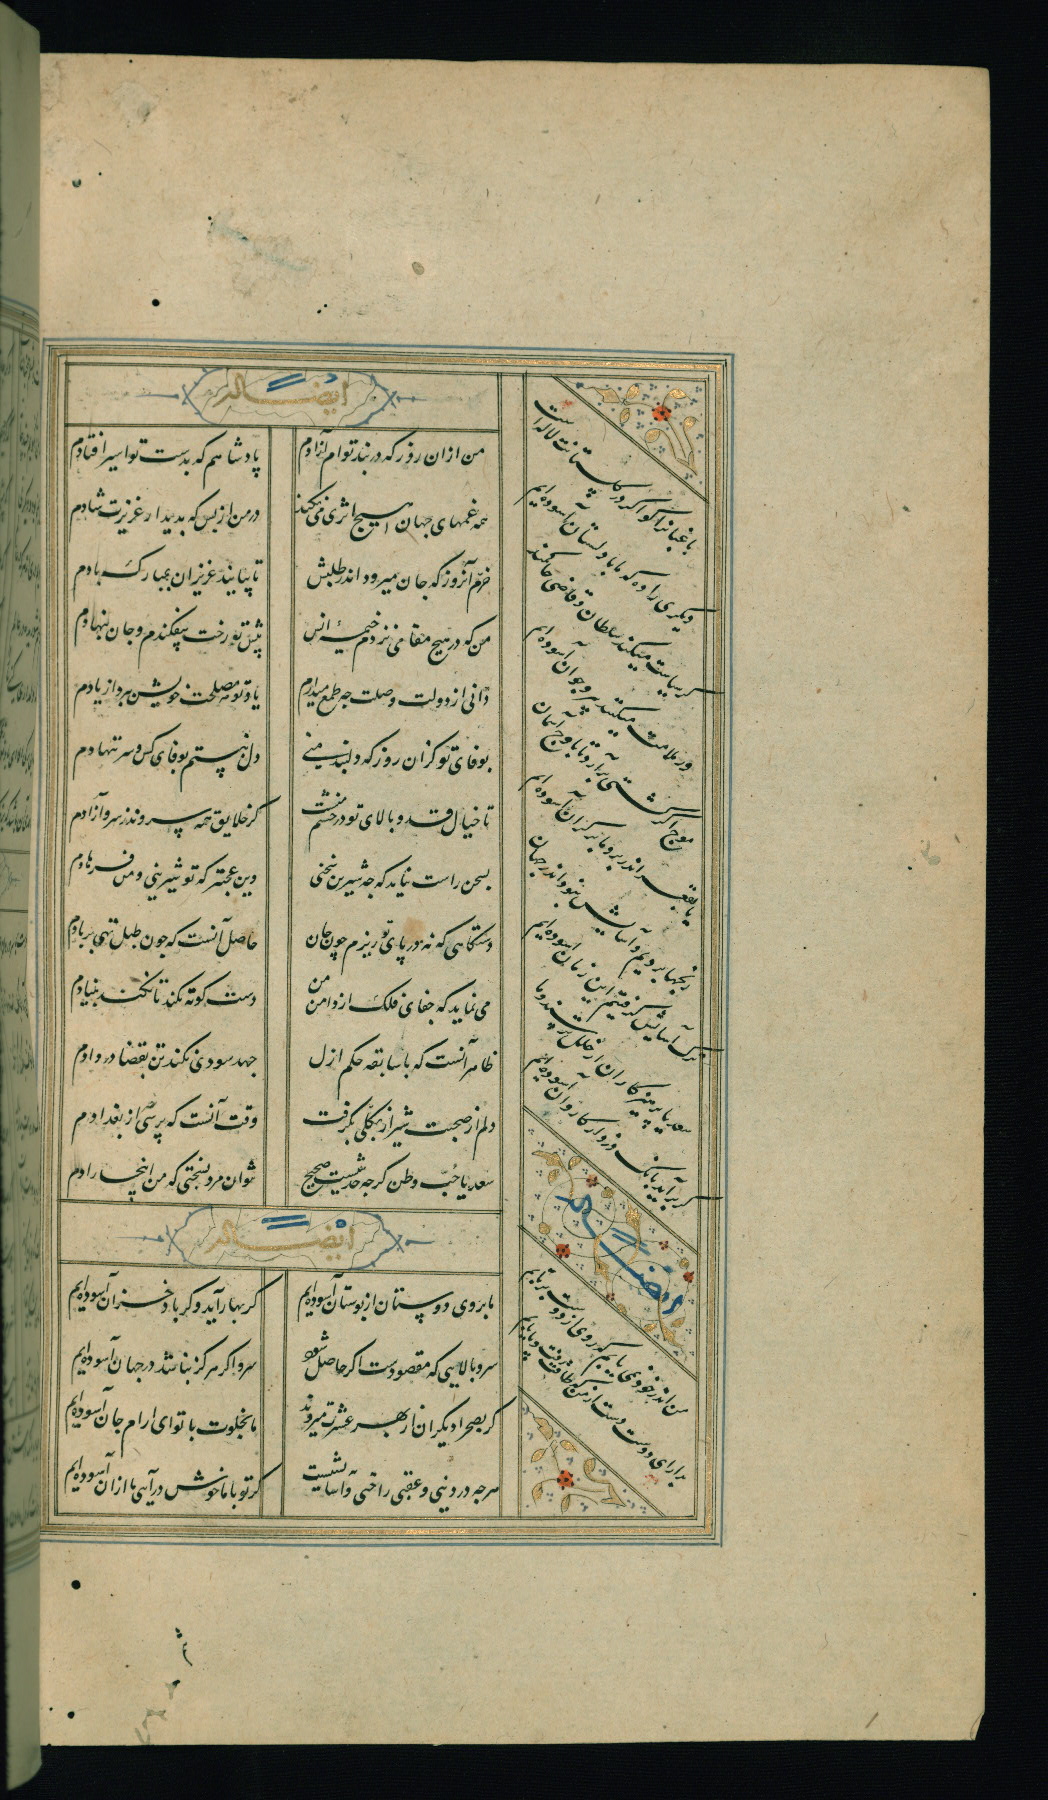 ایضاله
من ازان روز که در بند توام آزادم پادشاهم که بدست تو اسیر افتادم
همه غمهای جهان هیچ اثری می نکند در من از بس که بدیدار عزیزت شادم
خرم آنروز که جان میرود اندر طلبش تا بیایند عزیزان بمبارک بادم
من که در هیچ مقامی نزدم خیمه انس پیش تو رخت بیفکندم و جان بنهادم
دانی از دولت وصلت چه طمع میدارم یاد تو مصلحت خویش ببرد از یادم
بوفای تو کزان روز که دلبند منی دل نبستم بوفای کس و سر ننهادم
تا خیال قد و بالای تو در چشم منست گر خلایق همه سروند ز سرو آزادم
بسخن راست نیاید که چه شیرین سخنی وین عجبتر که تو شیرینی و من فرهادم
دستگاهی که نه در پای تو ریزم چون جان حاصل آنست که چون طبل تهی پر بادم
می نماید که جفای فلک از دامن من دست کوته نکند تا نکند بنیادم
ظاهر آنست که با سابقه حکم ازل جهد سودی نکند تن بقضا در دادم
دلم از صحبت شیراز بکلی بگرفت وقت آنست که پرسی از بغدادم
سعدیا حب وطن گرچه حدیثیست صحیح نتوان مرد بسختی که من اینجا زادم
ایضاله
ما بروی دوستان از بوستان آسوده‌ایم گر بهار آید و گر باد خزان آسوده‌ایم
سرو بالایی که مقصودست اگر حاصل شود سرو اگر هرگز نباشد در جهان آسوده‌ایم
گر بصحرا دیگران از بهر عشرت میروند ما بخلوت با تو ای آرام جان آسوده‌ایم
هر چه در دنیی و عقبی راحتی و آسایشست گر تو با ما خوش درآیی ما ازان آسوده‌ایم
باغبانرا گو اگر در گلستانت لاله است
دیگری را ده که ما با دلستان آسوده‌ایم
گر سیاست میکند سلطان و قاضی حاکمند
ور ملامت میکند پیر و جوان آسوده‌ایم
موج اگر کشتی برآرد تا باوج آسمان
یا بقعر اندر برد ما بر کران آسوده‌ایم
رنجها بردیم و آسایش نبود اندر جهان
ترک آسایش گرفتیم این زمان آسوده‌ایم
سعدیا پرهیزکاران از خلل ترسند و ما
گر برآید بانگ دزد از کاروان آسوده‌ایم
ایضاله
من اندر خود نمی یابم که روی از دوست برتابم
بدار ای دوست دست از من که طاقت رفت و پایابم